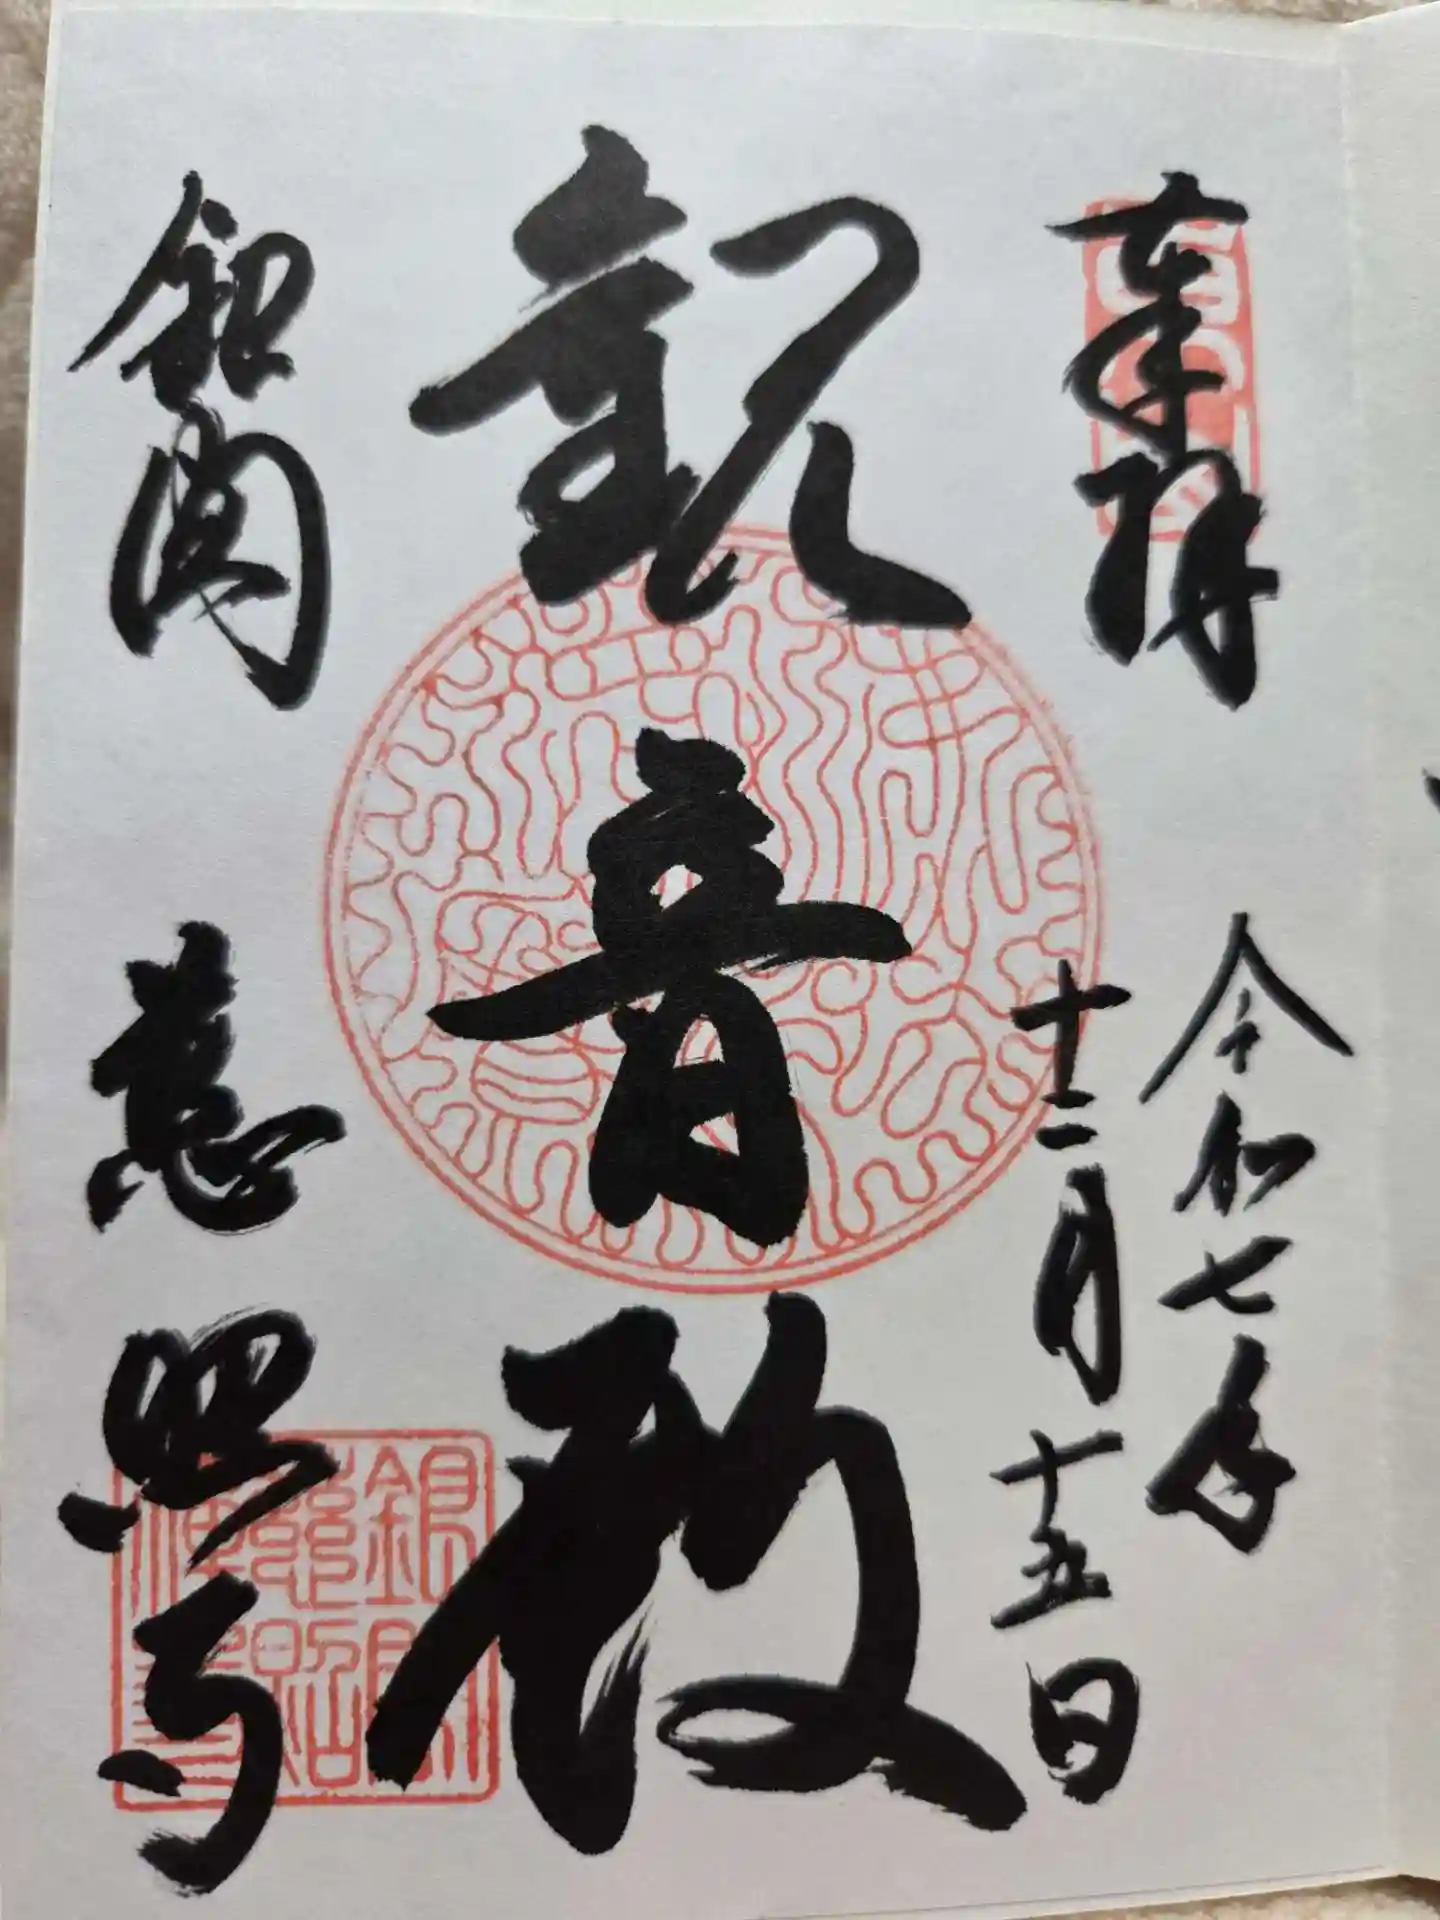 奉拝
令和七年
十二月十五日
観音殿
銀閣 慈照寺